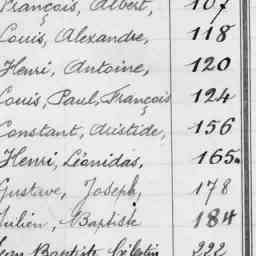 François, Albert, 107
Louis, Alexandre, 118
Henri, Antoine, 120
Louis, Paul, François 124
Constant, Aristide, 156
Henri, Léonidas, 165.
Gustave, Joseph, 178
Julien, Baptiste 184
Jean Baptiste Célestin 222